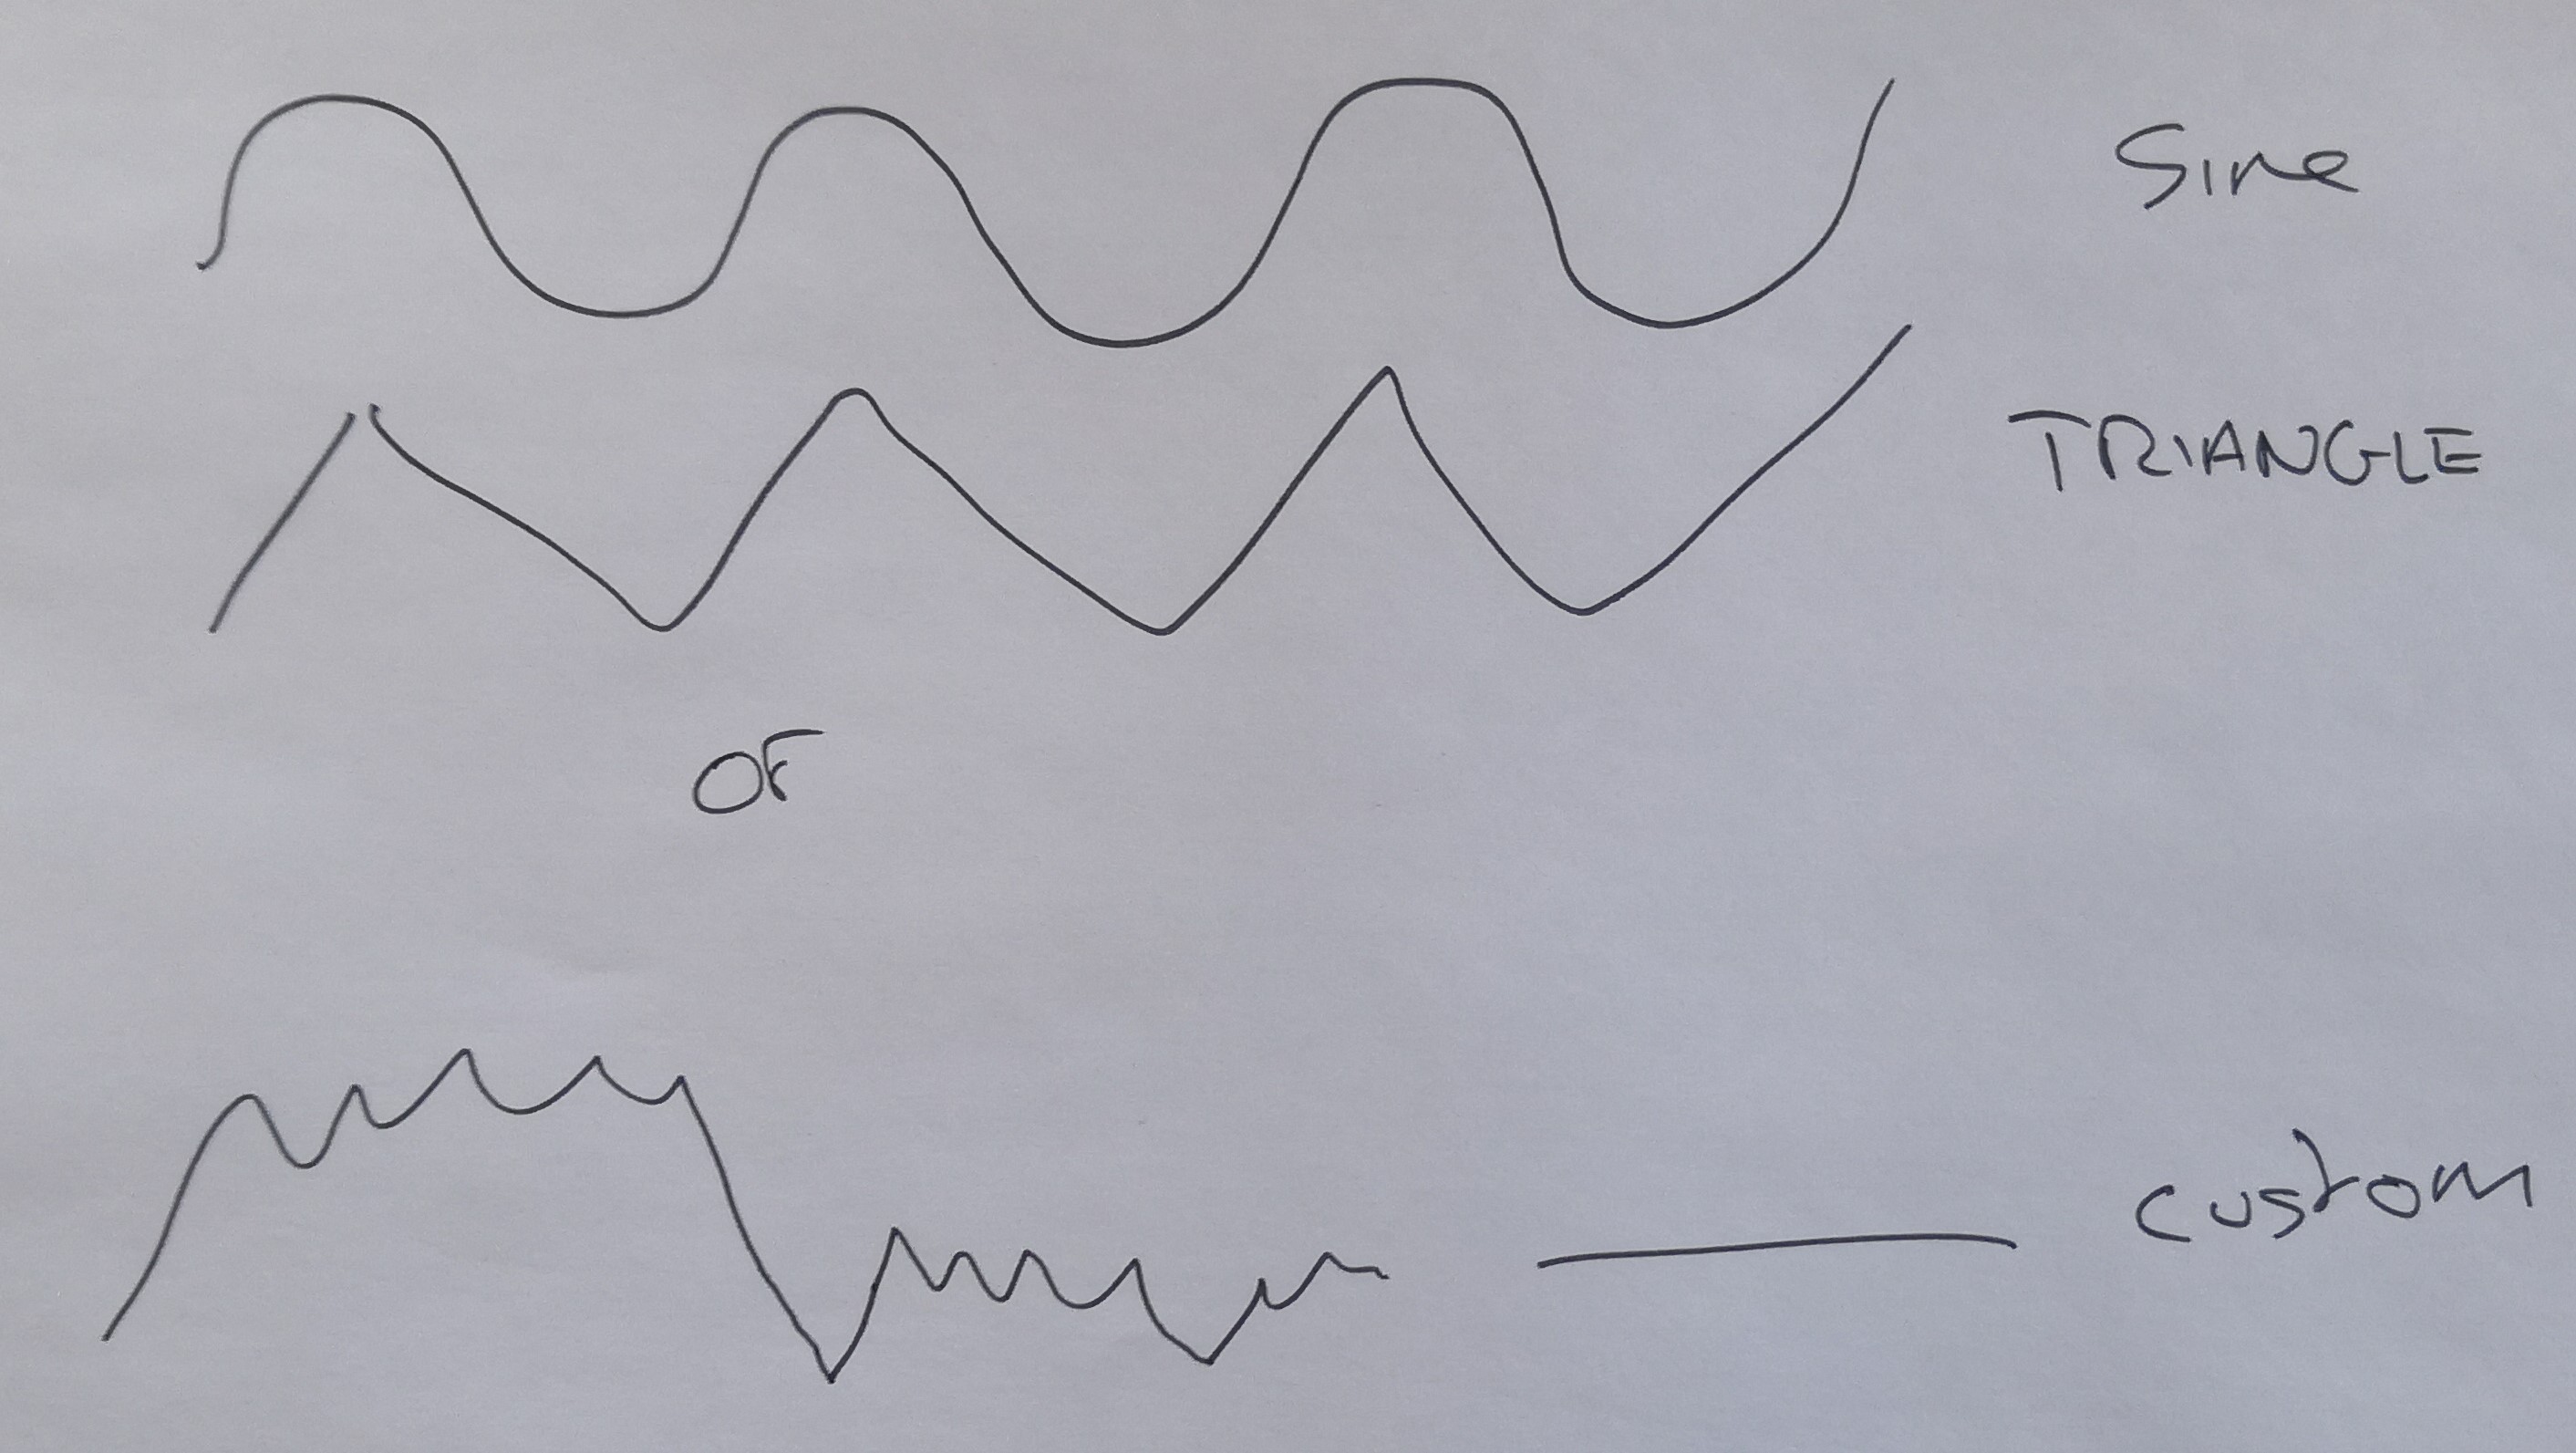 Sine
TRIANGLE
OF
custom